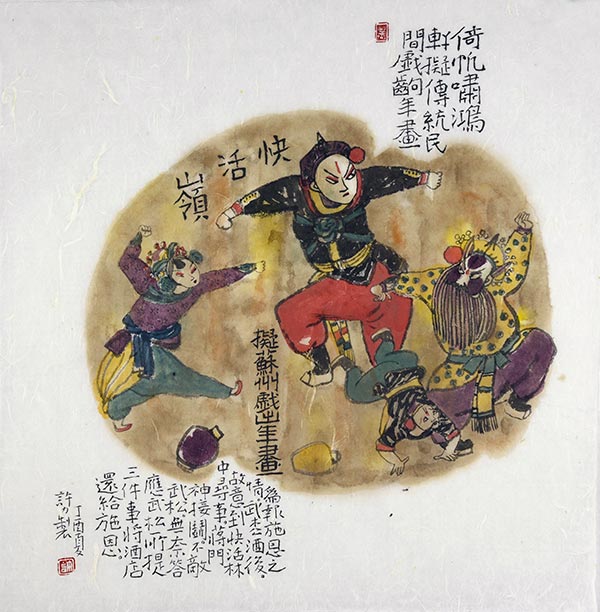 倚帆嘯鴻
軒擬傳統民
間戲齣年畫
快活嶺
擬蘇州戲出年畫
為報施恩之
情武松酒後。
故意到快活林
中尋事蔣門
神接鬪不敵
武松無奈答
應武松所提
三件事將酒店
還給施恩
丁酉夏
許製